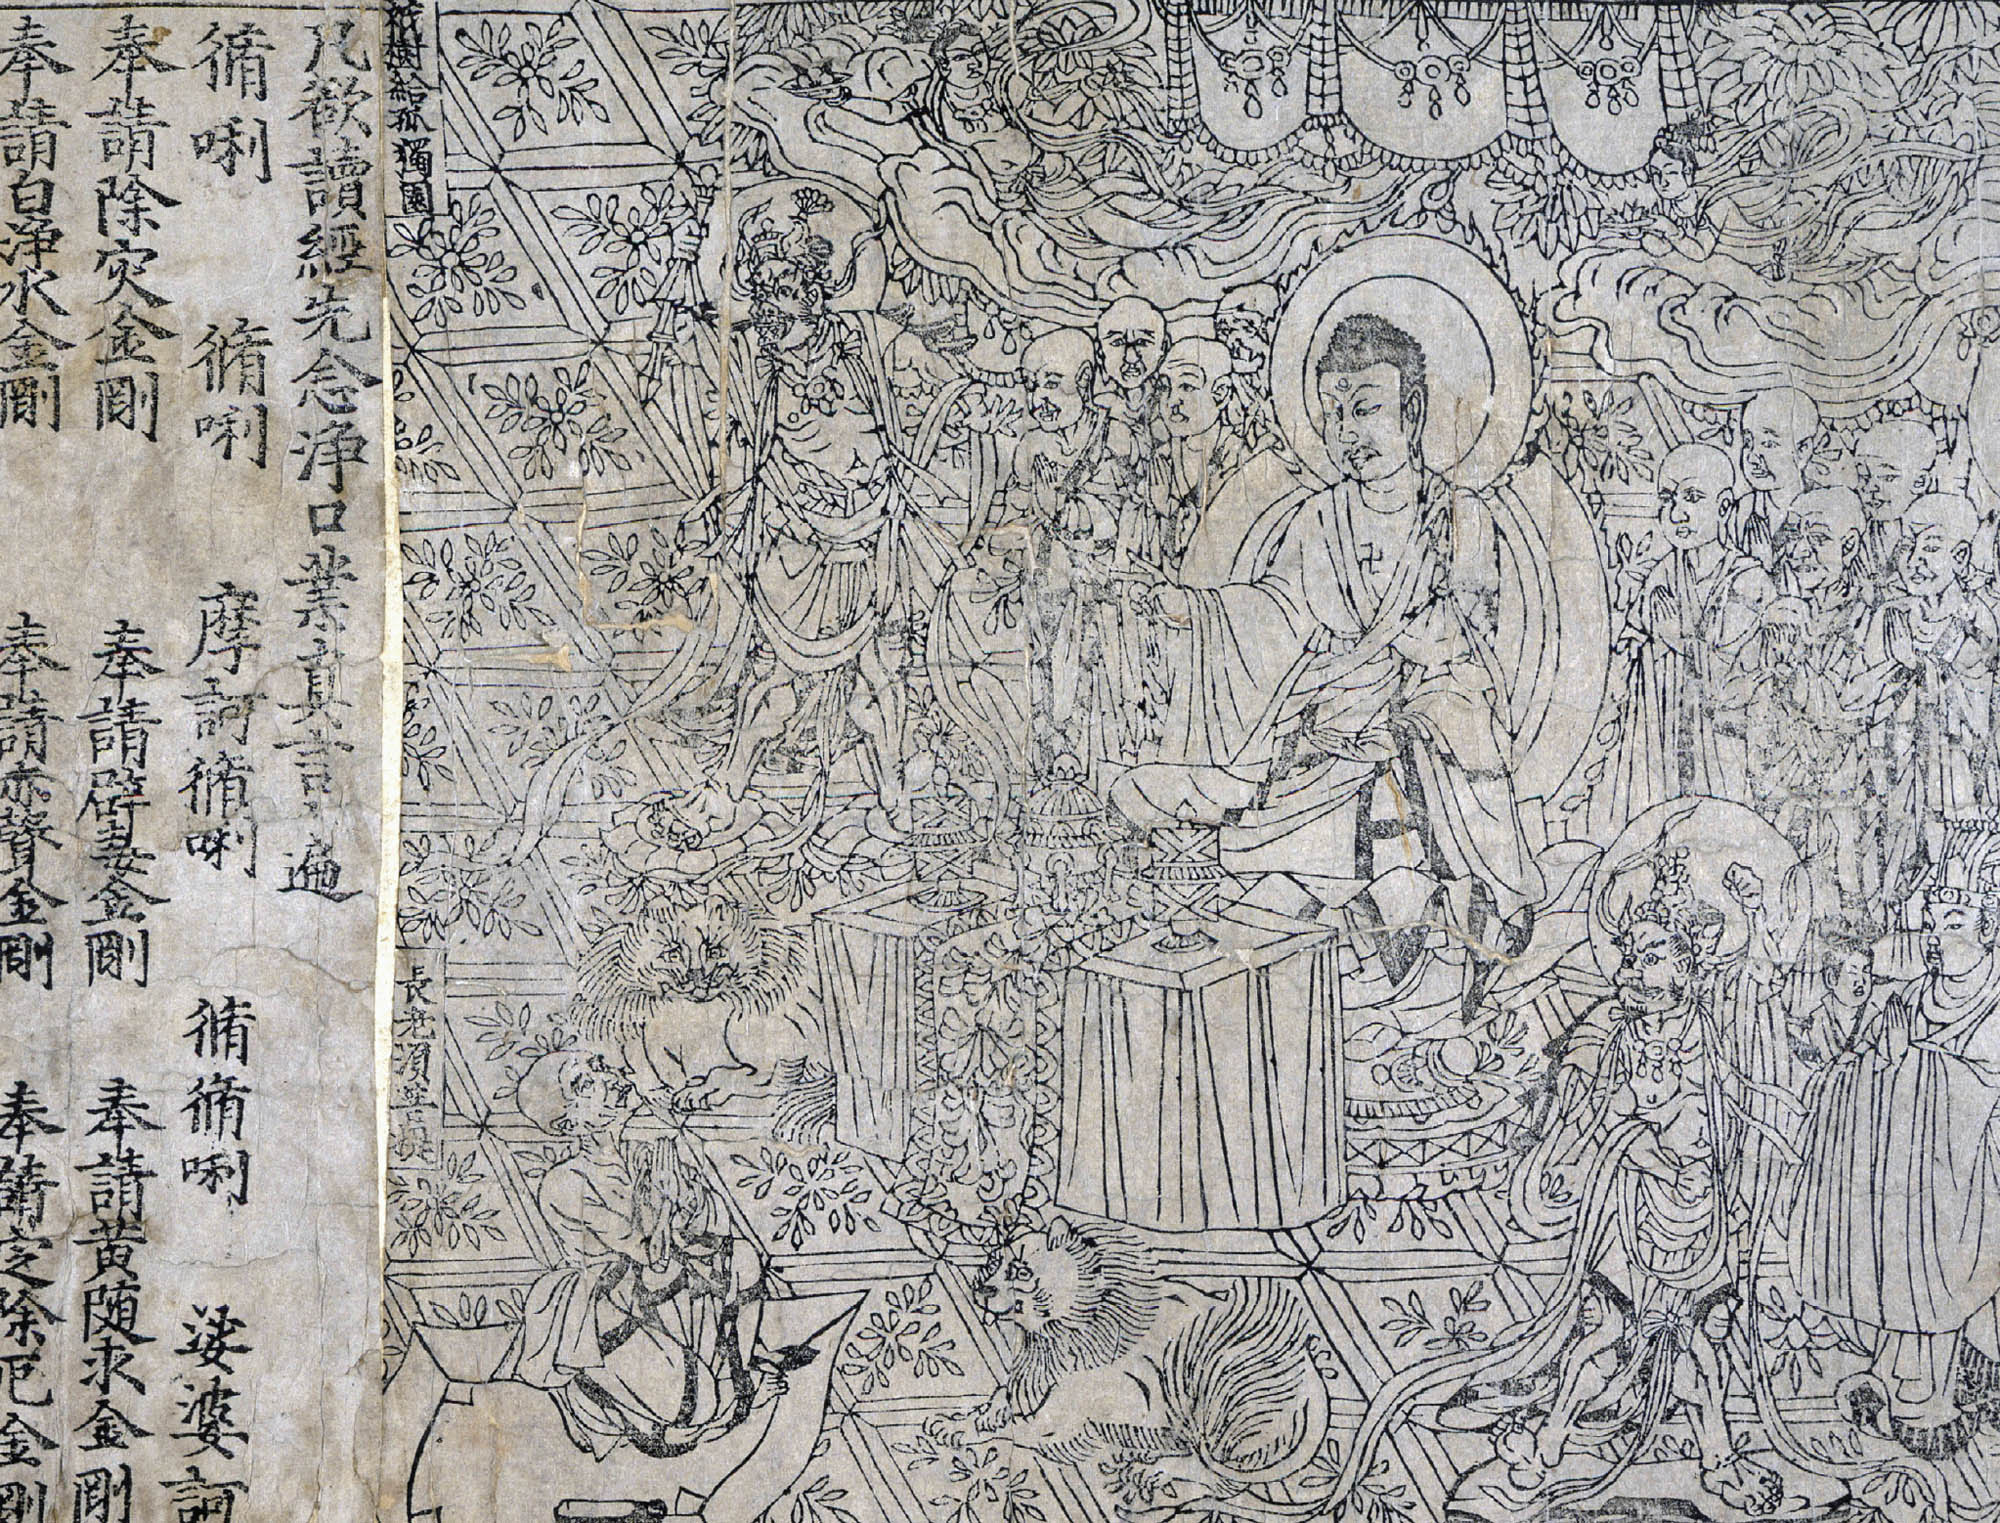 祇樹給孤獨園
長老須菩提
凡欲讀經先念浄口業真言一遍
脩唎 脩唎 摩訶脩唎 脩脩唎 娑婆訶
奉請除灾金剛 奉請辟毒金剛 奉請黄随求金剛
奉請白浄水金剛 奉請赤聲金剛 奉請定除厄金剛